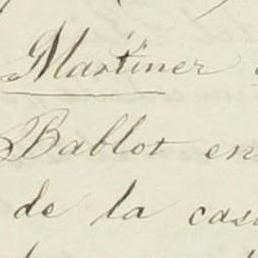 Martiner
Bablot en
de la cas